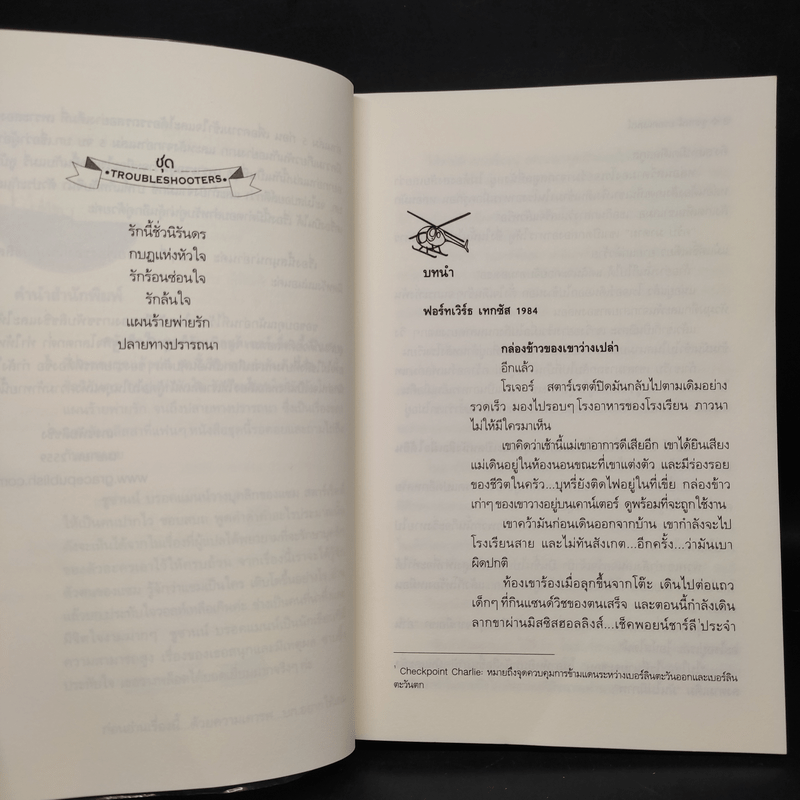 ชุด
•TROUBLESHOOTERS•
รักนี้ชั่วนิรันดร
กบฏแห่งหัวใจ
รักร้อนซ่อนใจ
รักล้นใจ
แผนร้ายพ่ายรัก
ปลายทางปรารถนา
บทนำ
ฟอร์ทเวิร์ธ เทกซัส 1984
กล่องข้าวของเขาว่างเปล่า
อีกแล้ว
โรเจอร์ สตาร์เรตต์ปิดมันกลับไปตามเดิมอย่าง
รวดเร็ว มองไปรอบๆ โรงอาหารของโรงเรียน ภาวนา
ไม่ให้มีใครมาเห็น
เขาคิดว่าเช้านี้แม่เขาอาการดีเสียอีก เขาได้ยินเสียง
แม่เดินอยู่ในห้องนอนขณะที่เขาแต่งตัว และมีร่องรอย
ของชีวิตในครัว...บุหรี่ยังติดไฟอยู่ในที่เขี่ย กล่องข้าว
เก่าๆ ของเขาวางอยู่บนเคาน์เตอร์ ดูพร้อมที่จะถูกใช้งาน
เขาคว้ามันก่อนเดินออกจากบ้าน เขากำลังจะไป
โรงเรียนสาย และไม่ทันสังเกต...อีกครั้ง...ว่ามันเบา
ผิดปกติ
ท้องเขาร้องเมื่อลุกขึ้นจากโต๊ะ เดินไปต่อแถว
เด็กๆ ที่กินแซนด์วิชของตนเสร็จ และตอนนี้กำลังเดิน
ลากขาผ่านมิสซิสฮอลลิงส์...เช็คพอยน์ชาร์ลี¹ประจำ
¹ Checkpoint Charlie: หมายถึงจุดควบคุมการข้ามแดนระหว่างเบอร์ลินตะวันออกและเบอร์ลิน
ตะวันตก